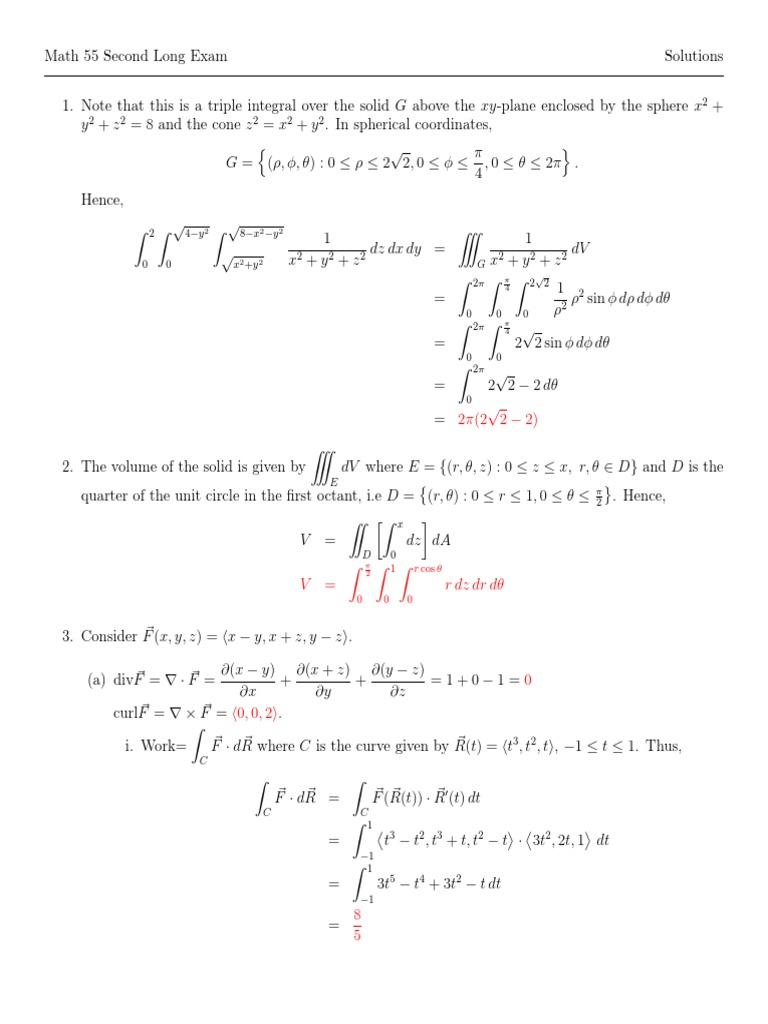 Math 55 Second Long Exam Solutions
1. Note that this is a triple integral over the solid G above the xy-plane enclosed by the sphere x² +
y² + z² = 8 and the cone z² = x² + y². In spherical coordinates,
G = {(ρ, φ, θ) : 0 ≤ ρ ≤ 2√2, 0 ≤ φ ≤ π/4, 0 ≤ θ ≤ 2π}.
Hence,
∫₀² ∫₀^√(4−y²) ∫_√(x²+y²)^√(8−x²−y²) 1/(x² + y² + z²) dz dx dy = ∭_G 1/(x² + y² + z²) dV
= ∫₀^2π ∫₀^π/4 ∫₀^2√2 1/ρ² ρ² sin φ dρ dφ dθ
= ∫₀^2π ∫₀^π/4 2√2 sin φ dφ dθ
= ∫₀^2π 2√2 − 2 dθ
= 2π(2√2 − 2)
2. The volume of the solid is given by ∭_E dV where E = {(r, θ, z) : 0 ≤ z ≤ x, r, θ ∈ D} and D is the
quarter of the unit circle in the first octant, i.e D = {(r, θ) : 0 ≤ r ≤ 1, 0 ≤ θ ≤ π/2}. Hence,
V = ∬_D [∫₀^x dz] dA
V = ∫₀^π/2 ∫₀^1 ∫₀^(r cos θ) r dz dr dθ
3. Consider F⃗(x, y, z) = ⟨x − y, x + z, y − z⟩.
(a) divF⃗ = ∇ · F⃗ = ∂(x − y)/∂x + ∂(x + z)/∂y + ∂(y − z)/∂z = 1 + 0 − 1 = 0
curlF⃗ = ∇ × F⃗ = ⟨0, 0, 2⟩.
i. Work= ∫_C F⃗ · dR⃗ where C is the curve given by R⃗(t) = ⟨t³, t², t⟩, −1 ≤ t ≤ 1. Thus,
∫_C F⃗ · dR⃗ = ∫_C F⃗(R⃗(t)) · R⃗′(t) dt
= ∫₋₁^1 ⟨t³ − t², t³ + t, t² − t⟩ · ⟨3t², 2t, 1⟩ dt
= ∫₋₁^1 3t⁵ − t⁴ + 3t² − t dt
= 8/5